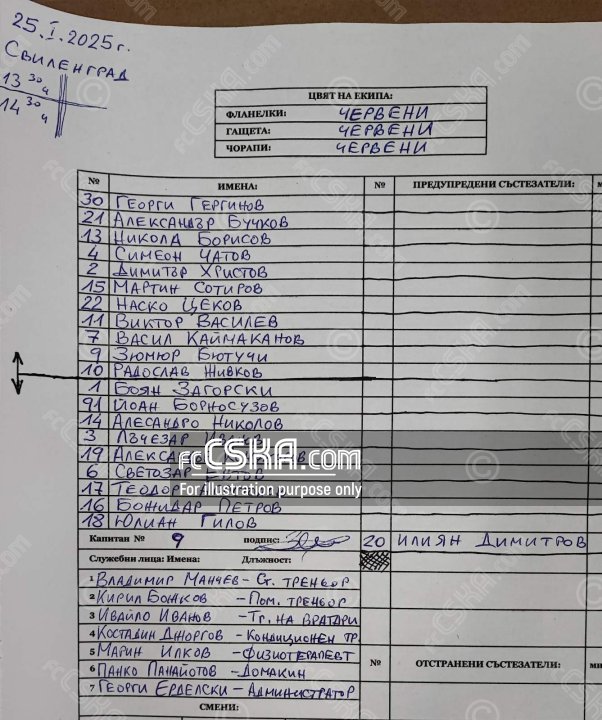 25.I.2025г.
СВИЛЕНГРАД
13 30 ч
14 30 ч
ЦВЯТ НА ЕКИПА:
ФЛАНЕЛКИ: ЧЕРВЕНИ
ГАЩЕТА: ЧЕРВЕНИ
ЧОРАПИ: ЧЕРВЕНИ
№ ИМЕНА: № ПРЕДУПРЕДЕНИ СЪСТЕЗАТЕЛИ:
30 ГЕОРГИ ГЕРГИНОВ
21 АЛЕКСАНДЪР БУЧКОВ
13 НИКОЛА БОРИСОВ
4 СИМЕОН ЧАТОВ
2 ДИМИТЪР ХРИСТОВ
15 МАРТИН СОТИРОВ
22 НАСКО ЦЕКОВ
11 ВИКТОР ВАСИЛЕВ
7 ВАСИЛ КАЙМАКАНОВ
9 ЗЮМЮР БЮТУЧИ
10 РАДОСЛАВ ЖИВКОВ
1 БОЯН ЗАГОРСКИ
91 ЙОАН БОРНОСУЗОВ
14 АЛЕСАНДРО НИКОЛОВ
3 ЛЪЧЕЗАР
19
6 СВЕТОЗАР
17 ТЕОДОР
16 БОЖИДАР ПЕТРОВ
18 ЮЛИАН ГИЛОВ
fcCSKA.com
For illustration purpose only
Капитан № 9 подпис: 20 ИЛИЯН ДИМИТРОВ
Служебни лица: Имена: Длъжност:
1 ВЛАДИМИР МАНЧЕВ - СТ. ТРЕНЬОР
2 КИРИЛ БОЖКОВ - ПОМ. ТРЕНЬОР
3 ИВАЙЛО ИВАНОВ - ТР. НА ВРАТАРИ
4 КОСТАДИН ДЖОРГОВ - КОНДИЦИОНЕН ТР.
5 МАРИН ИЛКОВ - ФИЗИОТЕРАПЕВТ
6 ПАНКО ПАНАЙОТОВ - ДОМАКИН
7 ГЕОРГИ ЕРДЕЛСКИ - АДМИНИСТРАТОР
№ ОТСТРАНЕНИ СЪСТЕЗАТЕЛИ:
СМЕНИ: